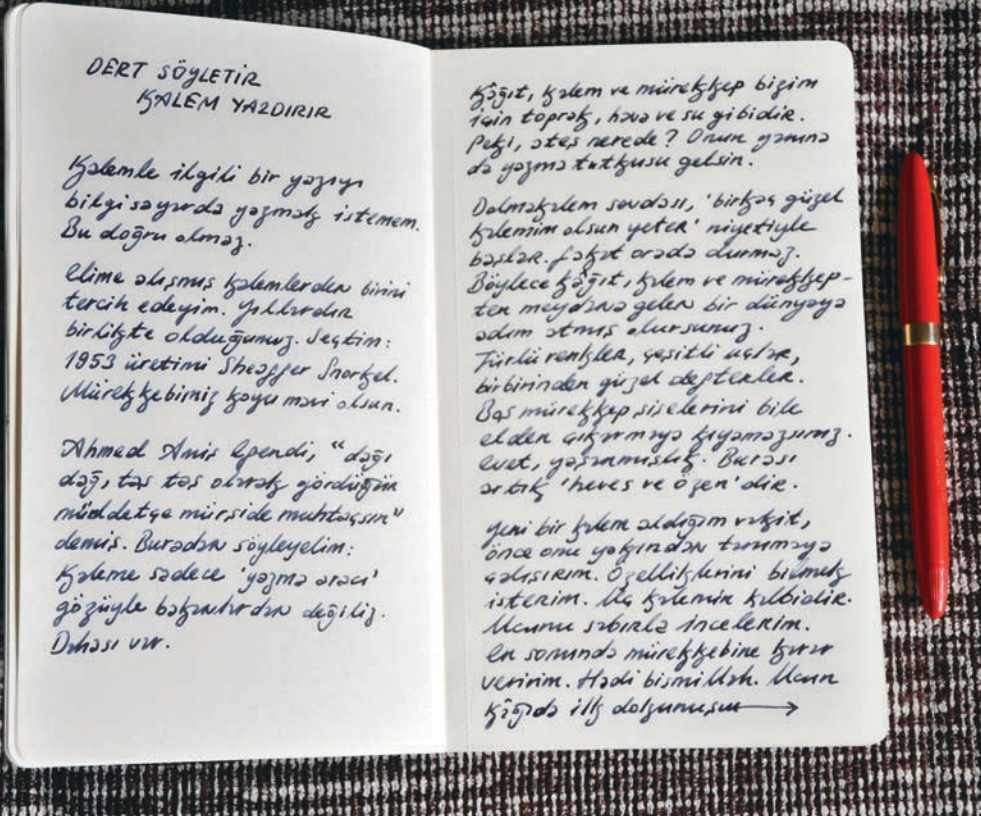 DERT SÖYLETİR
KALEM YAZDIRIR
Kalemle ilgili bir yazıyı
bilgisayarda yazmak istemem.
Bu doğru olmaz.
Elime alışmış kalemlerden birini
tercih edeyim. Yıllardır
birlikte olduğumuz. Seçtim:
1953 üretimi Sheaffer Snorkel.
Mürekkebimiz koyu mavi olsun.
Ahmed Amiş Efendi, "dağı
dağ, taş taş olarak gördüğün
müddetçe mürşide muhtaçsın"
demiş. Buradan söyleyelim:
Kaleme sadece 'yazma aracı'
gözüyle bakanlardan değiliz.
Dahası var.
Kâğıt, kalem ve mürekkep bizim
için toprak, hava ve su gibidir.
Peki, ateş nerede? Onun yanına
da yazma tutkusu gelsin.
Dolmakalem sevdası, 'birkaç güzel
kalemim olsun yeter' niyetiyle
başlar. Fakat orada durmaz.
Böylece kâğıt, kalem ve mürekkep-
ten meydana gelen bir dünyaya
adım atmış olursunuz.
Türlü renkler, çeşitli uçlar,
birbirinden güzel defterler.
Boş mürekkep şişelerini bile
elden çıkarmaya kıyamazsınız.
Evet, yaşanmışlık. Burası
artık 'heves ve özen'dir.
Yeni bir kalem aldığım vakit,
önce onu yakından tanımaya
çalışırım. Özelliklerini bilmek
isterim. Uç kalemin kalbidir.
Ucunu sabırla incelerim.
En sonunda mürekkebine karar
veririm. Hadi bismillah. Ucun
kâğıda ilk dokunuşu →